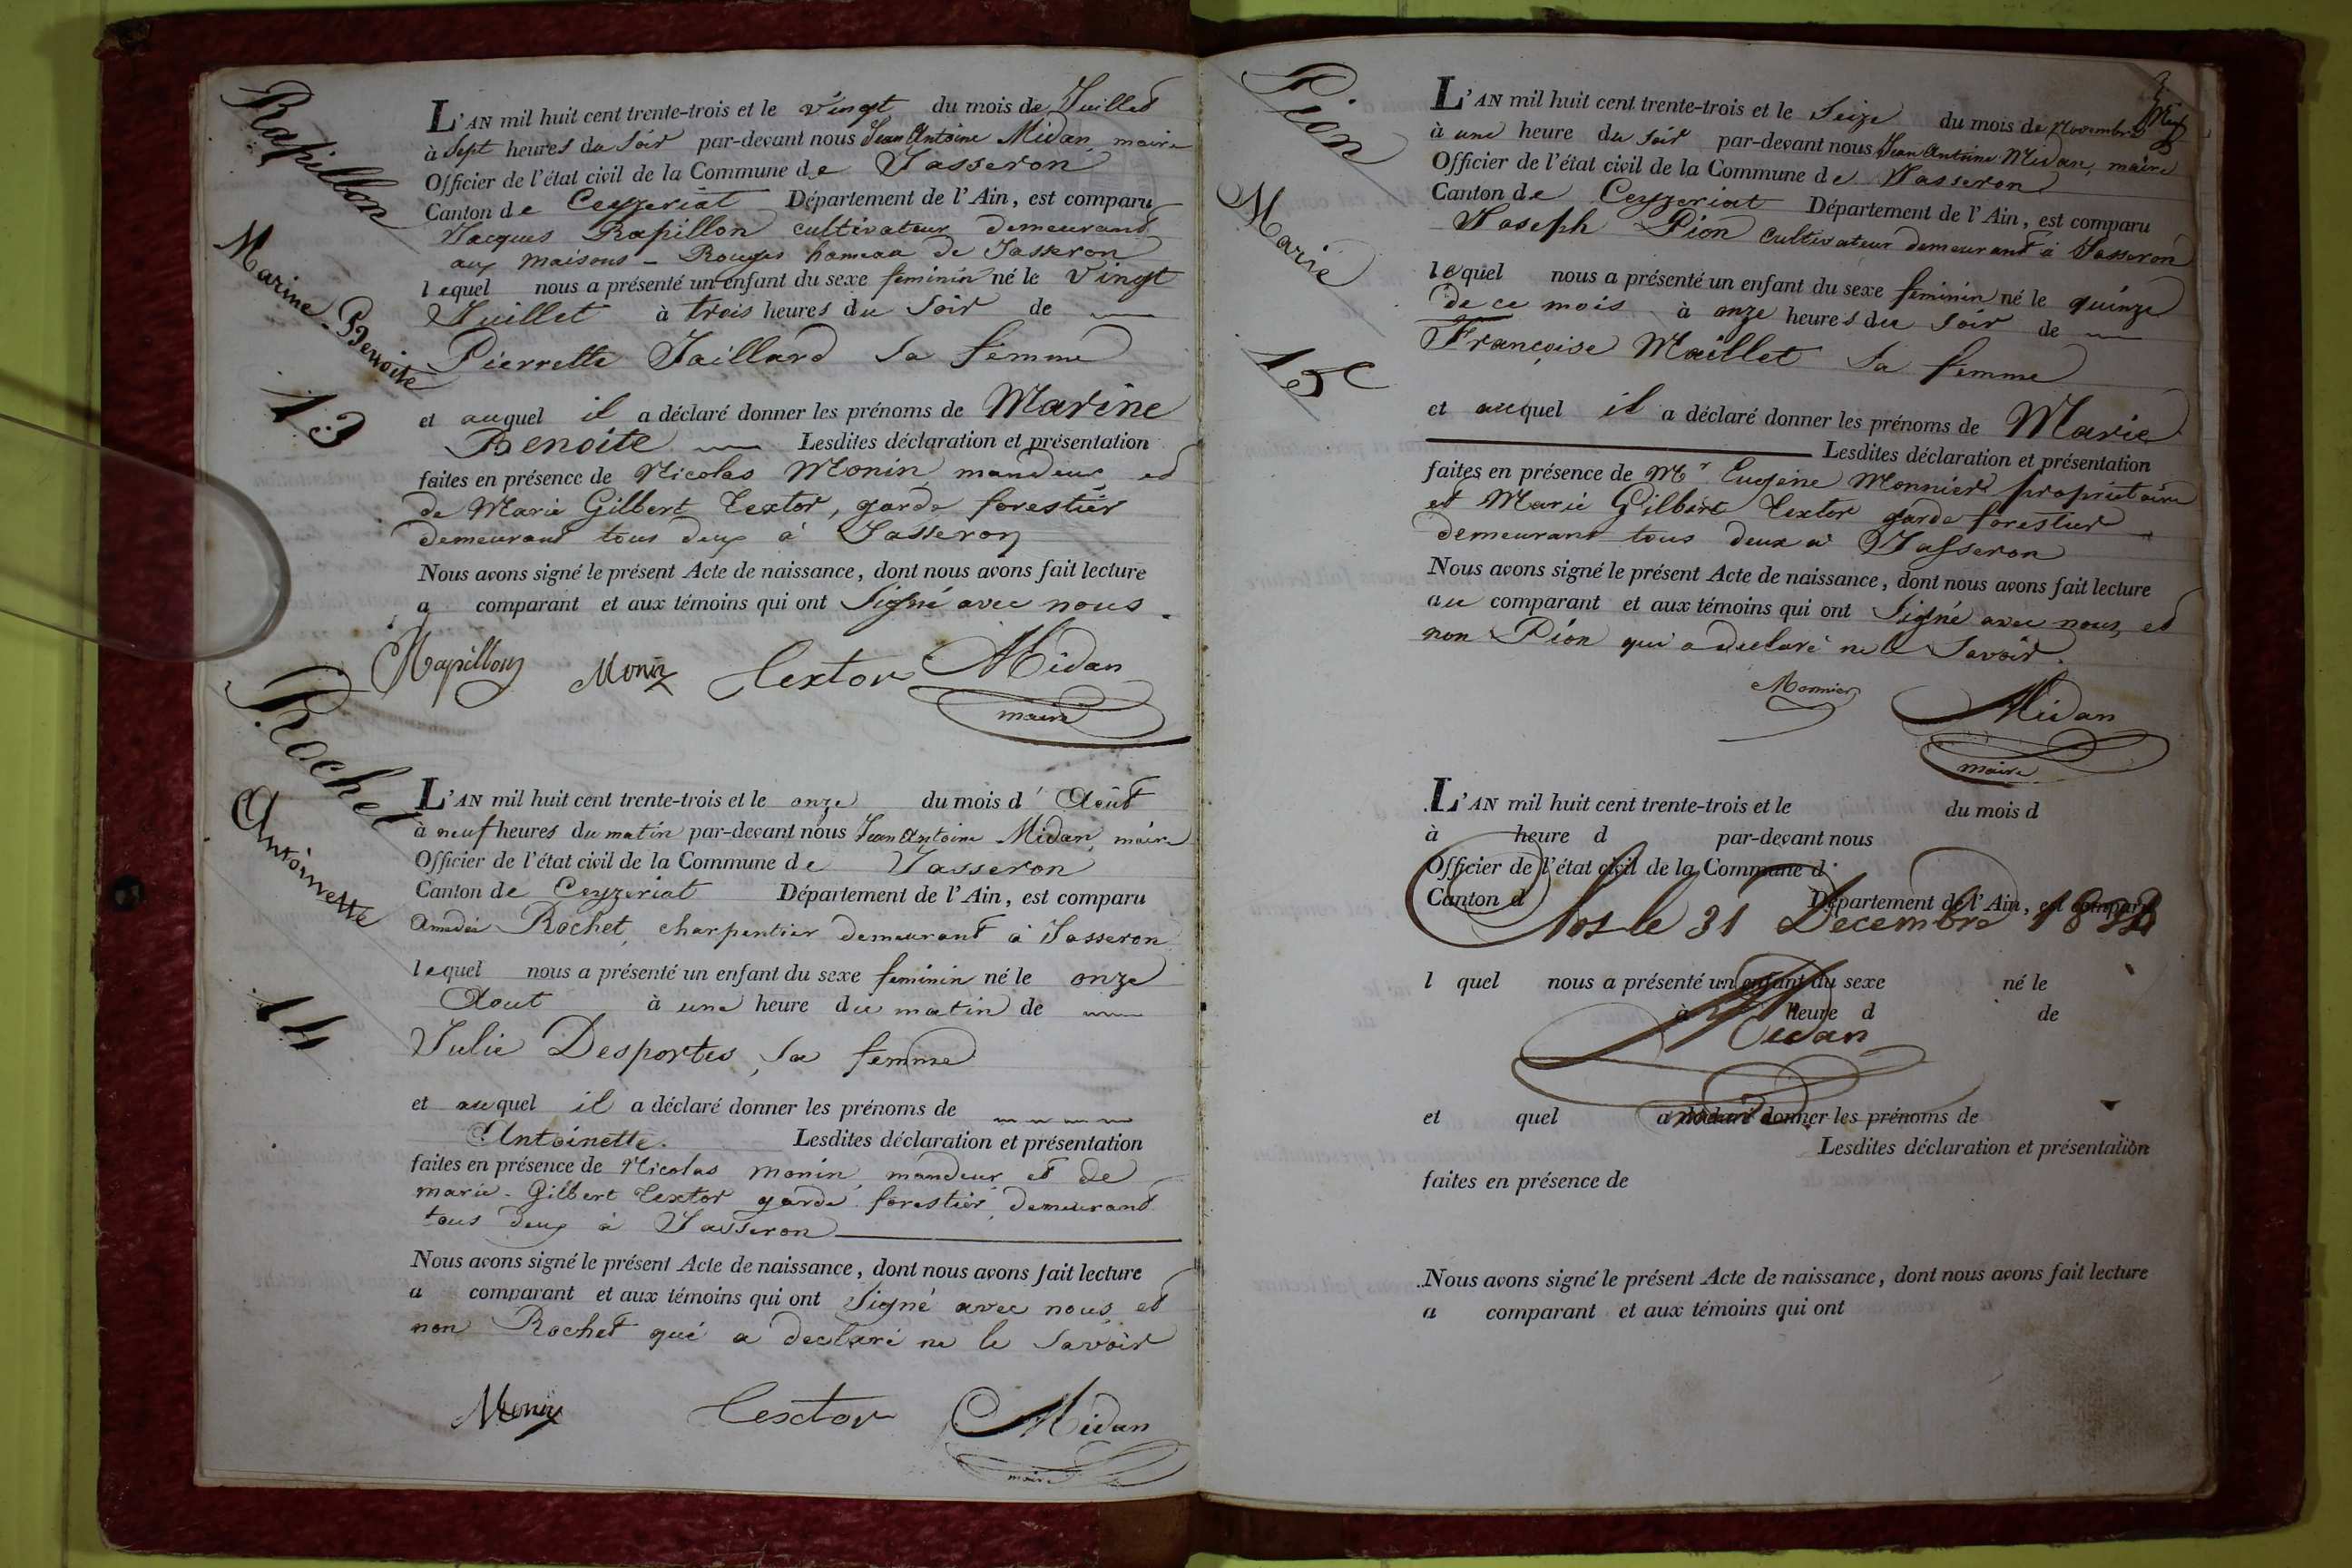 Rapillon
Marine-Benoite
13
L'AN mil huit cent trente-trois et le vingt du mois de Juillet
à sept heures du soir par-devant nous Jean Antoine Midan, maire
Officier de l'état civil de la Commune de Jasseron
Canton de Ceyzeriat Département de l'Ain, est comparu
Jacques Rapillon cultivateur demeurant
aux maisons-Rouges hameau de Jasseron
lequel nous a présenté un enfant du sexe feminin né le Vingt
Juillet à trois heures du soir de
Pierrette Jaillard sa femme
et auquel il a déclaré donner les prénoms de Marine
Benoite Lesdites déclaration et présentation
faites en présence de Nicolas Monin, mandeur, et
de Marie Gilbert Textor, garde forestier
demeurant tous deux à Jasseron
Nous avons signé le présent Acte de naissance, dont nous avons fait lecture
a comparant et aux témoins qui ont signé avec nous.
Rapillon Monin Textor Midan
maire
Rochet
Antoinette
14
L'AN mil huit cent trente-trois et le onze du mois d' Août
à neuf heures du matin par-devant nous Jean Antoine Midan, maire
Officier de l'état civil de la Commune de Jasseron
Canton de Ceyzeriat Département de l'Ain, est comparu
Amedée Rochet, charpentier demeurant à Jasseron
lequel nous a présenté un enfant du sexe feminin né le onze
Aout à une heure du matin de
Julie Desportes, sa femme
et auquel il a déclaré donner les prénoms de
Antoinette. Lesdites déclaration et présentation
faites en présence de Nicolas monin, mandeur, et de
marie-Gilbert Textor garde forestier, demeurant
tous deux à Jasseron
Nous avons signé le présent Acte de naissance, dont nous avons fait lecture
a comparant et aux témoins qui ont signé avec nous, et
non Rochet qui a declaré ne le savoir
Monin Textor Midan
maire
Pion
Marie
15
L'AN mil huit cent trente-trois et le Seize du mois de Novembre
à une heure du soir par-devant nous Jean Antoine Midan, maire
Officier de l'état civil de la Commune de Jasseron
Canton de Ceyzeriat Département de l'Ain, est comparu
Joseph Pion cultivateur demeurant à Jasseron
lequel nous a présenté un enfant du sexe feminin né le quinze
de ce mois à onze heures du soir de
Françoise Maillet sa femme
et auquel il a déclaré donner les prénoms de Marie
Lesdites déclaration et présentation
faites en présence de Mr Eugène Monnier propriétaire
et Marie Gilbert Textor garde forestier
demeurant tous deux à Jasseron
Nous avons signé le présent Acte de naissance, dont nous avons fait lecture
au comparant et aux témoins qui ont signé avec nous, et
non Pion qui a declaré ne le savoir.
Monnier Midan
maire
L'AN mil huit cent trente-trois et le du mois d
à heure d par-devant nous
Officier de l'état civil de la Commune d
Canton d Département de l'Ain, est comparu
Clos le 31 Decembre
l quel nous a présenté un enfant du sexe né le
à heure d de
Midan
et quel a déclaré donner les prénoms de
Lesdites déclaration et présentation
faites en présence de
Nous avons signé le présent Acte de naissance, dont nous avons fait lecture
a comparant et aux témoins qui ont